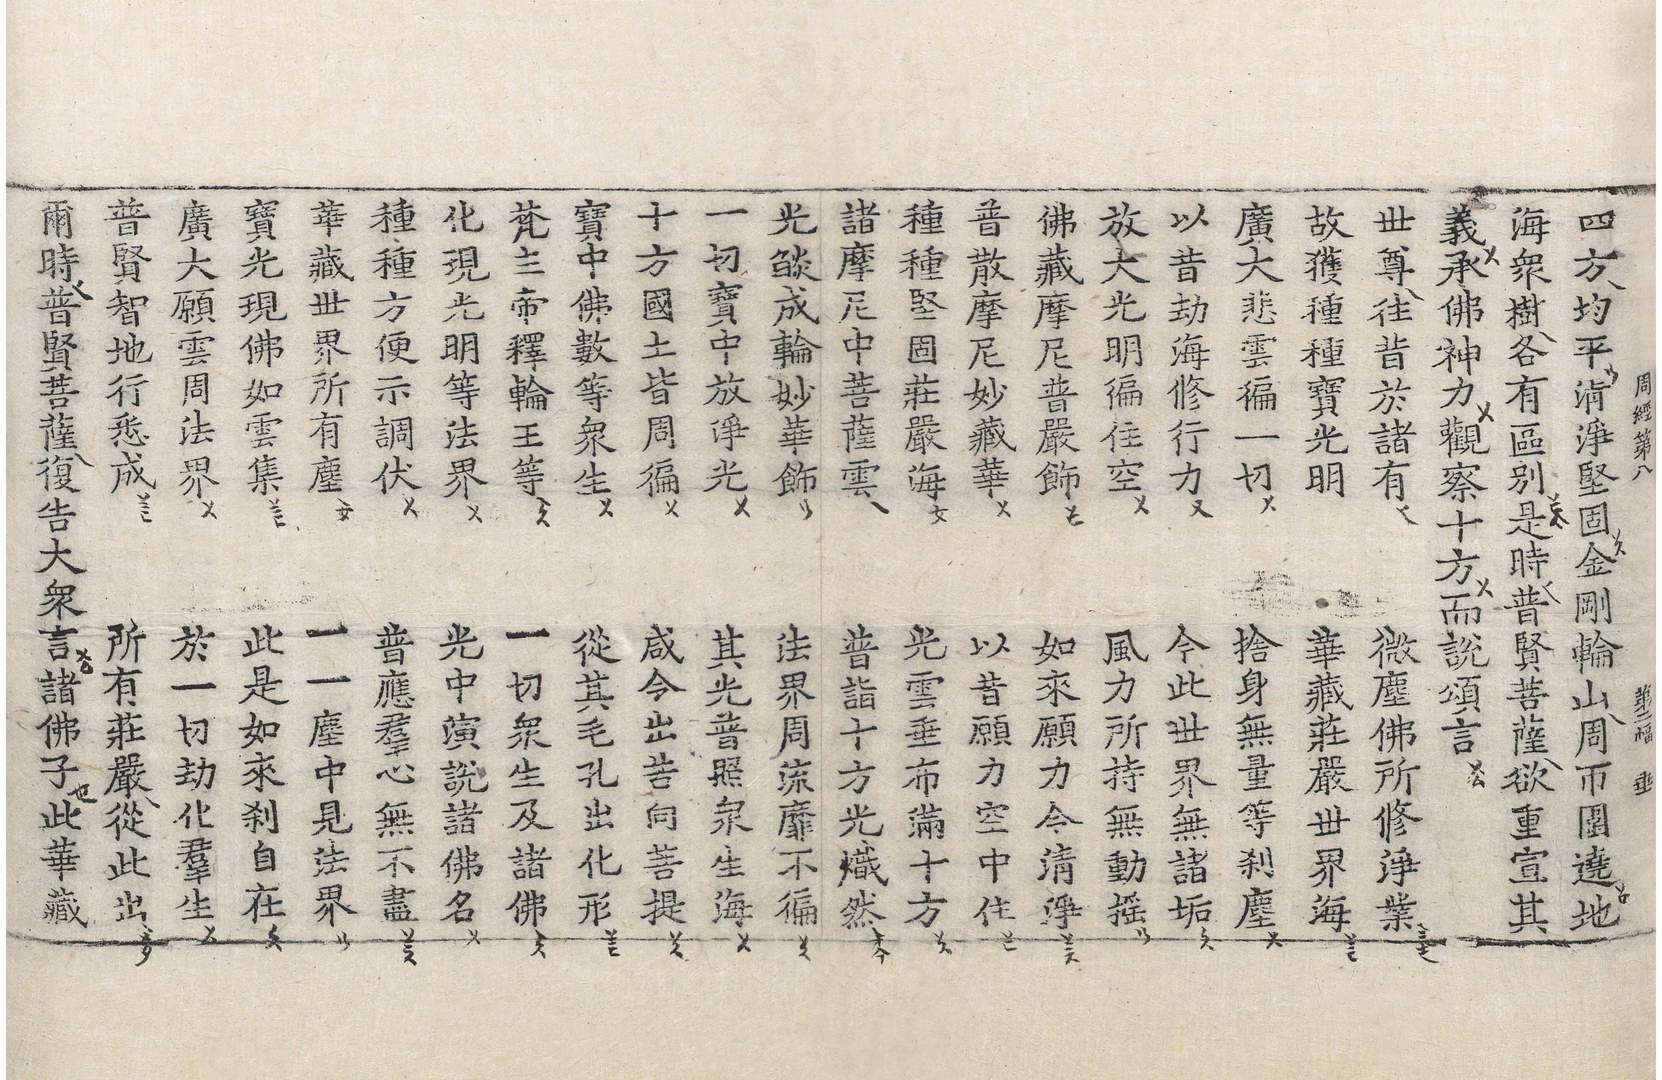 周經第八 第二幅 垂
四方均平清淨堅固金剛輪山周帀圍遶地
海衆樹各有區別是時普賢菩薩欲重宣其
義承佛神力觀察十方而說頌言
世尊往昔於諸有 微塵佛所修淨業
故獲種種寶光明 華藏莊嚴世界海
廣大悲雲徧一切 捨身無量等刹塵
以昔劫海修行力 今此世界無諸垢
放大光明徧住空 風力所持無動揺
佛藏摩尼普嚴飾 如來願力令清淨
普散摩尼妙藏華 以昔願力空中住
種種堅固莊嚴海 光雲垂布滿十方
諸摩尼中菩薩雲 普詣十方光熾然
光燄成輪妙華飾 法界周流靡不徧
一切寶中放淨光 其光普照衆生海
十方國土皆周徧 咸令出苦向菩提
寶中佛數等衆生 從其毛孔出化形
梵主帝釋輪王等 一切衆生及諸佛
化現光明等法界 光中演說諸佛名
種種方便示調伏 普應羣心無不盡
華藏世界所有塵 一一塵中見法界
寶光現佛如雲集 此是如來刹自在
廣大願雲周法界 於一切劫化羣生
普賢智地行悉成 所有莊嚴從此出
爾時普賢菩薩復告大衆言諸佛子此華藏